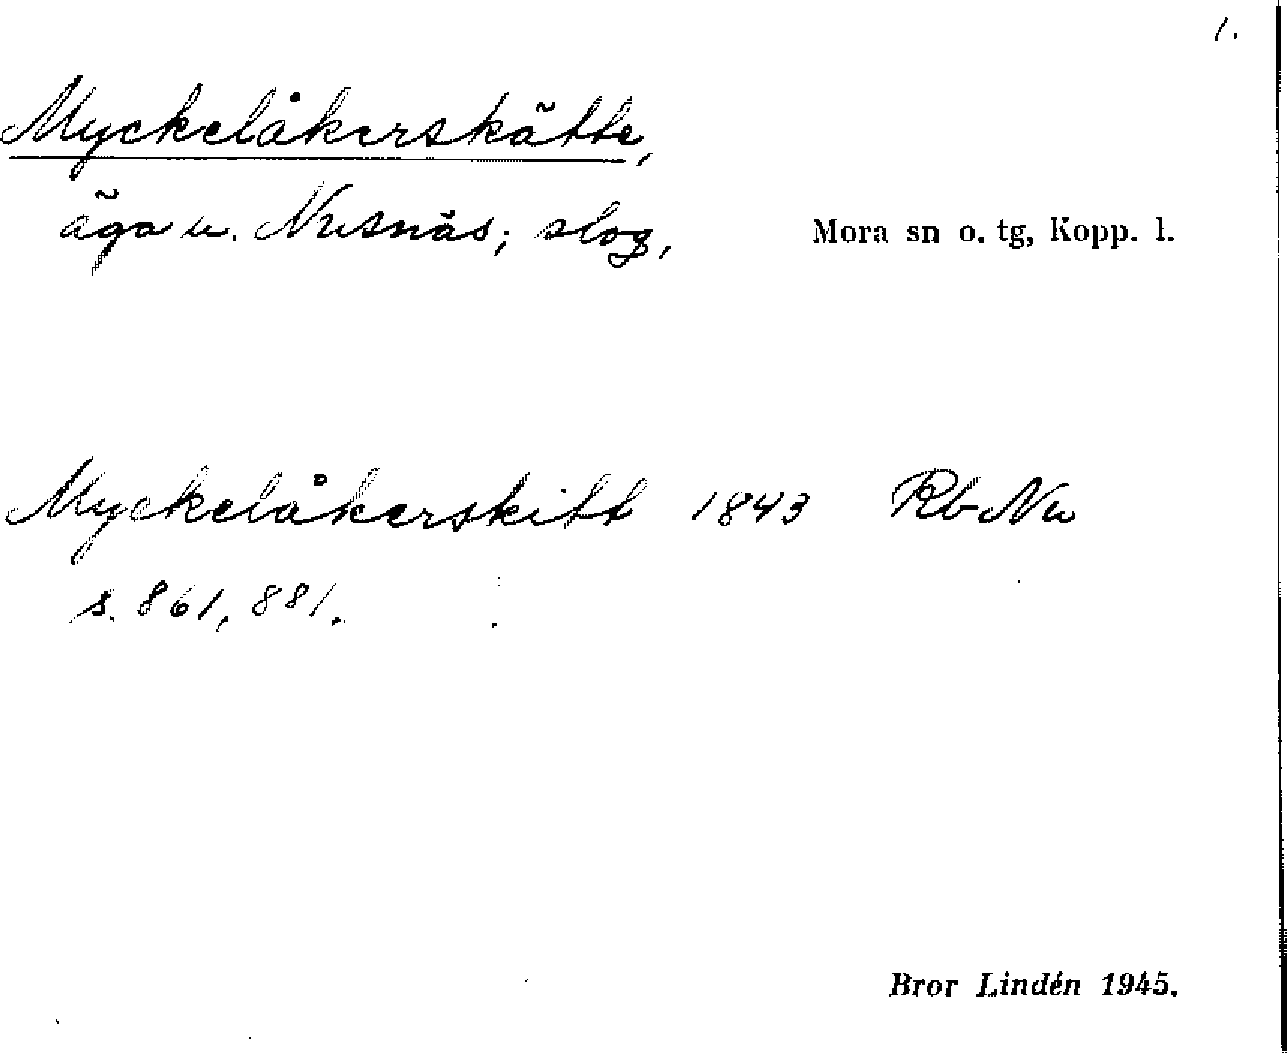 1.
Myckelåkerskätte,
äga u. Nusnäs; slog,
Mora sn o. tg, Kopp. l.
Myckelåkerskitt 1843 RbNu
s. 861, 881.
Bror Lindén 1945.